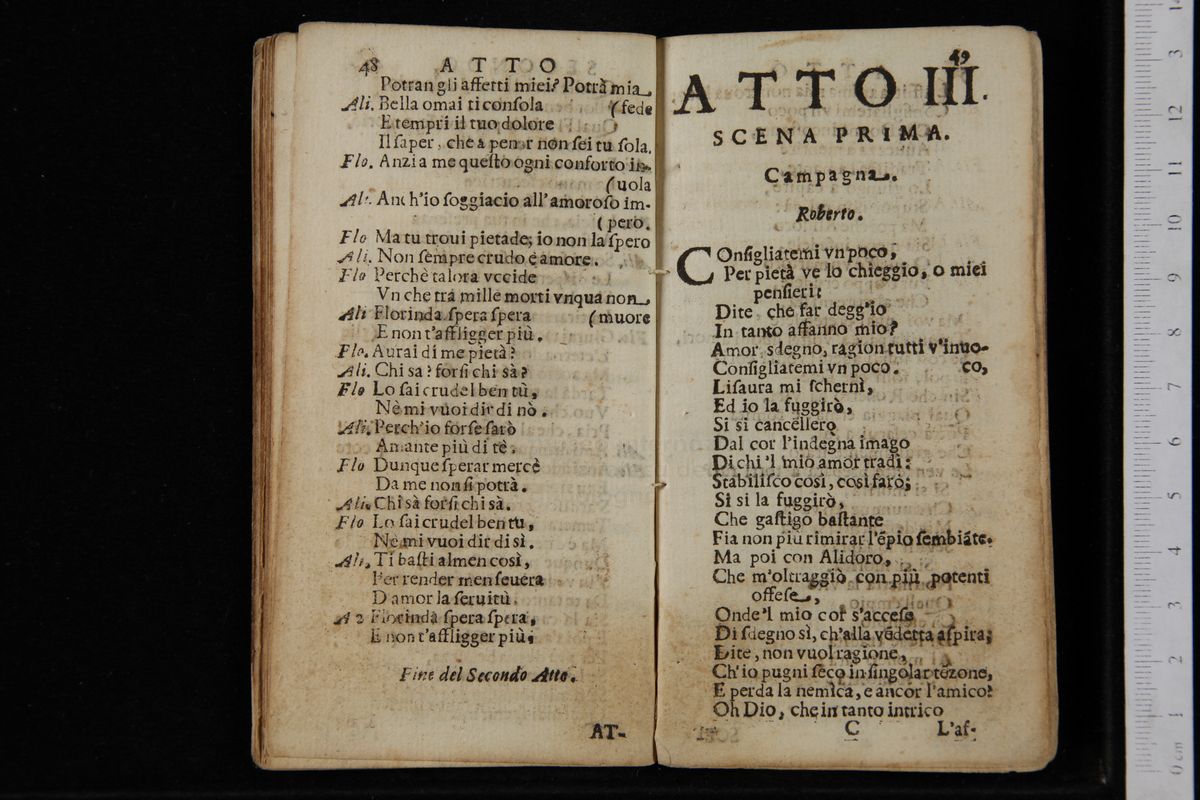 48 ATTO
Potran gli affetti miei? Potrà mia
Ali. Bella omai ti consola (fede
E tempri il tuo dolore
Il saper, che a penar non sei tu sola.
Flo. Anzi a me questo ogni conforto in-
(uola
Ali. Anch'io soggiacio all'amoroso im-
(pero.
Flo Ma tu troui pietade; io non la spero
Ali. Non sempre crudo è amore.
Flo Perchè talora vccide
Vn che trà mille morti vnqua non
Ali Florinda spera spera (muore
E non t'affligger più.
Flo. Aurai di me pietà?
Ali. Chi sa? forsi chi sà?
Flo Lo sai crudel ben tù,
Nè mi vuoi dir di nò.
Ali. Perch'io forse sarò
Amante più di tè.
Flo Dunque sperar mercè
Da me non si potrà.
Ali. Chi sà forsi chi sà.
Flo Lo sai crudel ben tu,
Ne mi vuoi dir di sì.
Ali. Ti basti almen così,
Per render men seuera
D amor la seruitù.
A 2 Florinda spera spera,
E non t'affligger più.
Fine del Secondo Atto.
AT-
49
ATTO III.
SCENA PRIMA.
Campagna.
Roberto.
COnsigliatemi vn poco,
Per pietà ve lo chieggio, o miei
pensieri:
Dite, che far degg'io
In tanto affanno mio?
Amor, sdegno, ragion tutti v'inuo-
Consigliatemi vn poco. co,
Lisaura mi schernì,
Ed io la fuggirò,
Si si cancellerò
Dal cor l'indegna imago
Di chi 'l mio amor tradì:
Stabilisco così, così farò;
Si si la fuggirò,
Che gastigo bastante
Fia non più rimirar l'épio sembiáte.
Ma poi con Alidoro,
Che m'oltraggiò con più potenti
offese,
Onde'l mio cor s'accese
Di sdegno sì, ch'alla védetta aspira;
Dite, non vuol ragione,
Ch'io pugni seco in singolar tézone,
E perda la nemica, e ancor l'amico?
Oh Dio, che in tanto intrico
C L'af-
0 cm 1 2 3 4 5 6 7 8 9 10 11 12 3 14